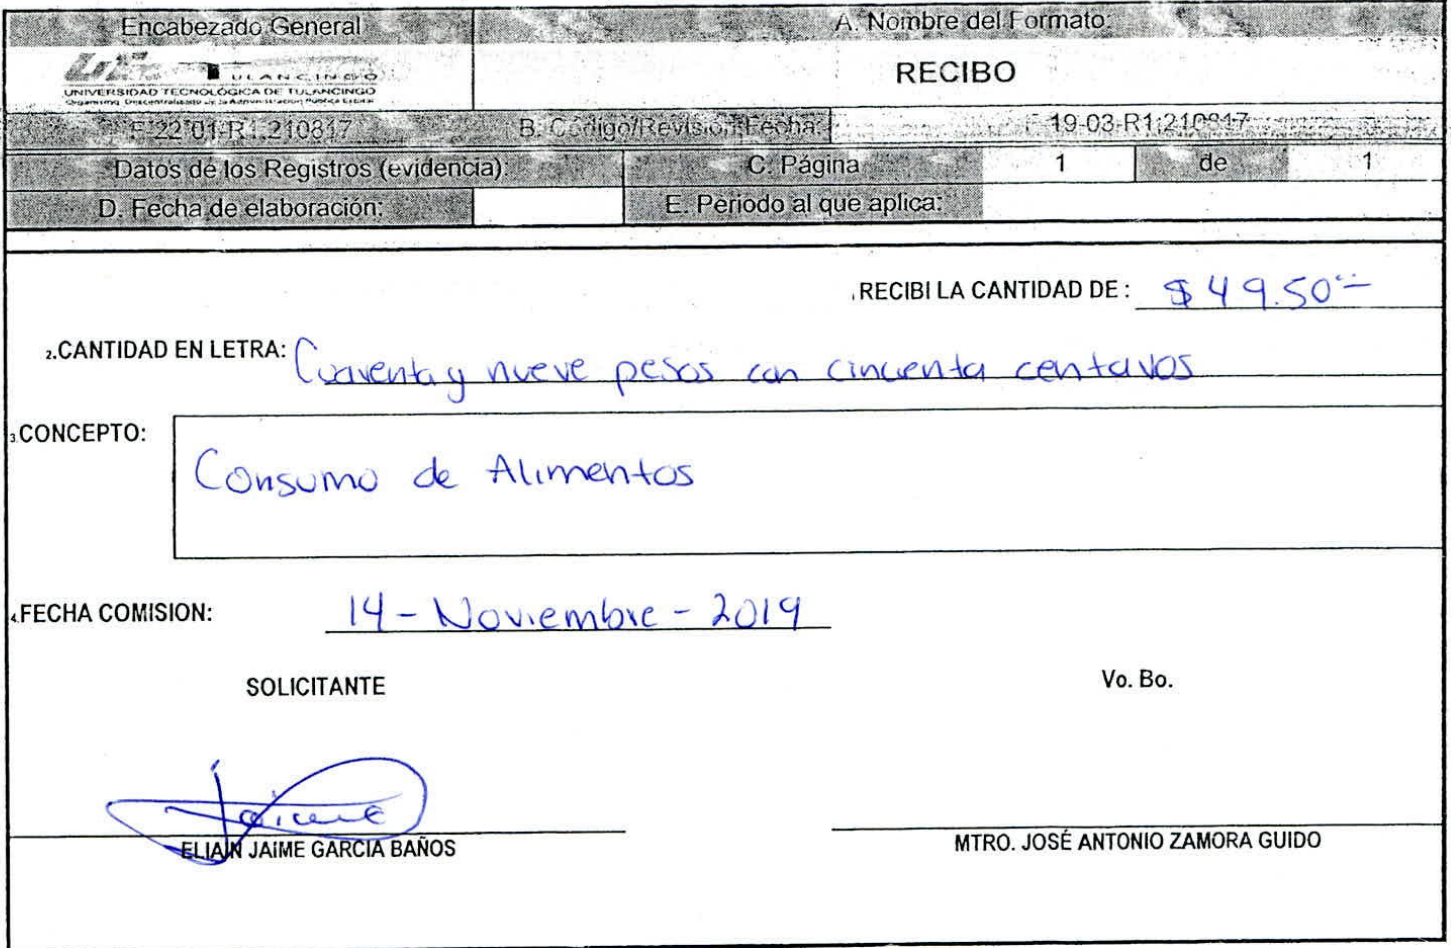 Encabezado General
A. Nombre del Formato:
ULANCINGO
UNIVERSIDAD TECNOLÓGICA DE TULANCINGO
Organismo Descentralizado de la Administración Pública Estatal
RECIBO
F-22-01-R1;210817
B. Código/Revisión;Fecha:
F-19-03-R1;210817
Datos de los Registros (evidencia)
C. Página
1
de
1
D. Fecha de elaboración:
E. Periodo al que aplica:
1.RECIBI LA CANTIDAD DE : $ 49.50
2.CANTIDAD EN LETRA: Cuarenta y nueve pesos con cincuenta centavos
3.CONCEPTO:
Consumo de Alimentos
4.FECHA COMISION: 14 - Noviembre - 2019
SOLICITANTE
Vo. Bo.
Jaime
ELIAIN JAIME GARCIA BAÑOS
MTRO. JOSÉ ANTONIO ZAMORA GUIDO